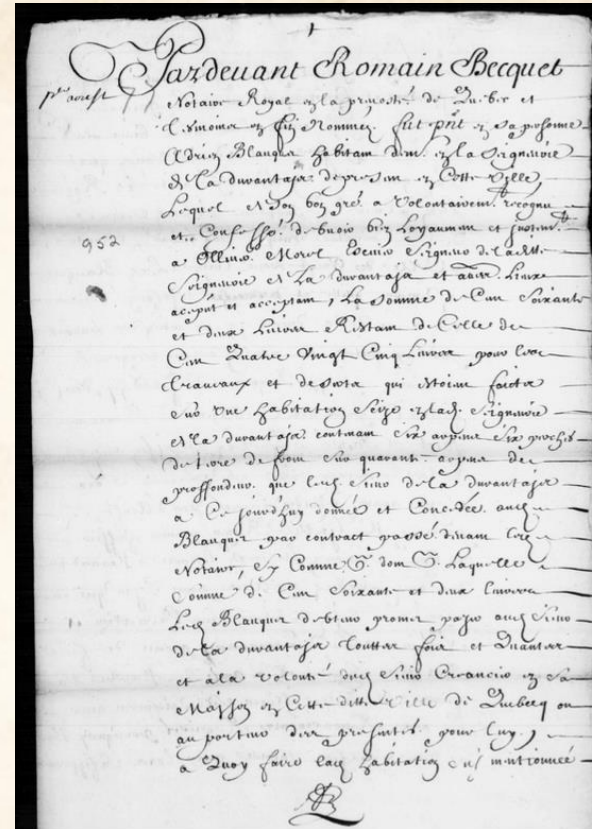 Pardevant Romain Becquet
pr. acquest
Notaire Royal en la prevosté de Quebec et
tesmoins en fin Nommez fut pnt en sa personne
Adrien Blanquet habitant demt en la Seigneurie
de la durantaye de present en Cette Ville
Lequel de Son bon gré a Volontairemt recognu
et Confessé debvoir bien Loyaument et justemt
952
a Ollivier Morel Escuier Seigneur de ladite
Seigneurie de La durantaye et autres Lieux
acceptant, La Somme de Cent Soixante
et deux Livres Restant de Celle de
Cent Quatre Vingt Cinq Livres pour les
travaux et qui estoient faicts
Sur Une habitation Seize en lad. Seigneurie
de la durantaye contenant Six arpens Six perches
de terre de front Sur quarante arpens de
proffondeur que led. Sieur de la durantaye
a Ce jourd'huy donnée et Concedée aud.
Blanquet par contract passé devant led.
Notaire, Sy Comme &. dont &. Laquelle
Somme de Cent Soixante et deux Livres
Led. Blanquet promet payer aud. Sieur
de la durantaye touttes fois et Quantes
et a la Volonté dud. Sieur Creancier en Sa
Maison en Cette ditte Ville de Quebecq ou
au porteur des presentes pour luy,
a Quoy faire lad. habitation mentionnée